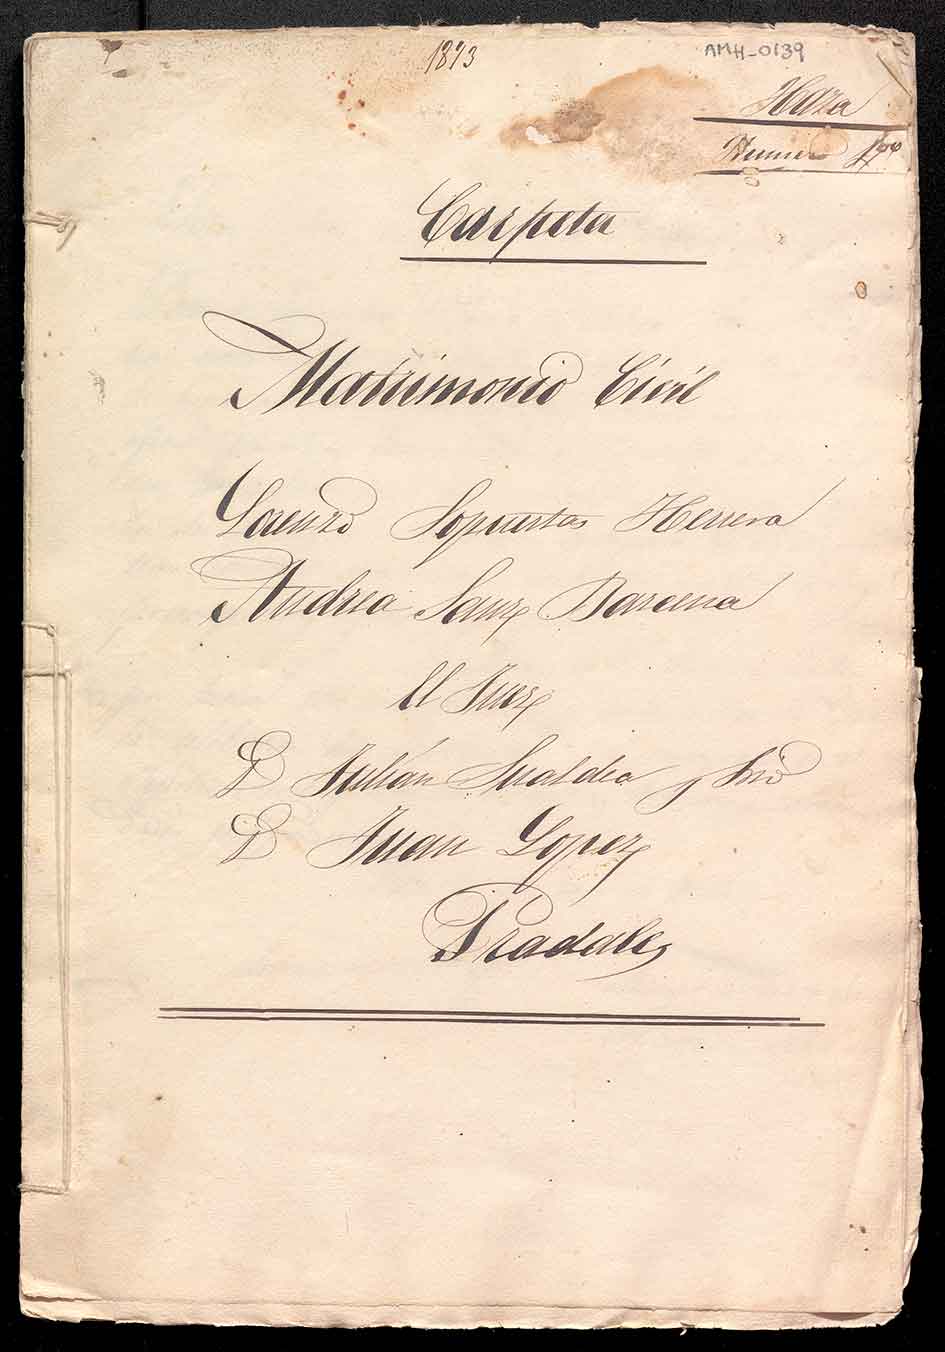 1873
AMH-0139
Haza
Numero 1º
Carpeta
Matrimonio Civil
Lorenzo Sopuertas Herrera
Andrea Sanz Barcena
El Juez
D Julián Sualdea y Srio
D Juan Lopez
Pradales